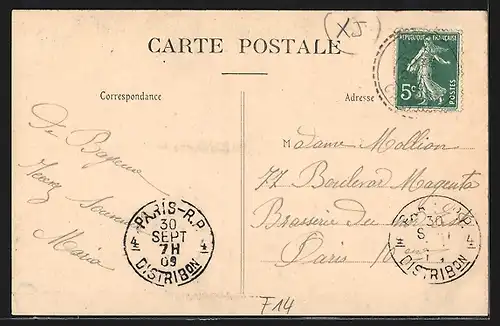 (XJ)
CARTE POSTALE
REPUBLIQUE FRANÇAISE
5c
POSTES
Correspondance
Adresse
De Bayeux
Souvenir
Maria
Madame Mollion
77 Boulevar Magenta
Brasserie du
Paris 10
PARIS-R.P.
30
SEPT
7H
09
4 4
DISTRIBON
30
S
4
DISTRIBON
F14